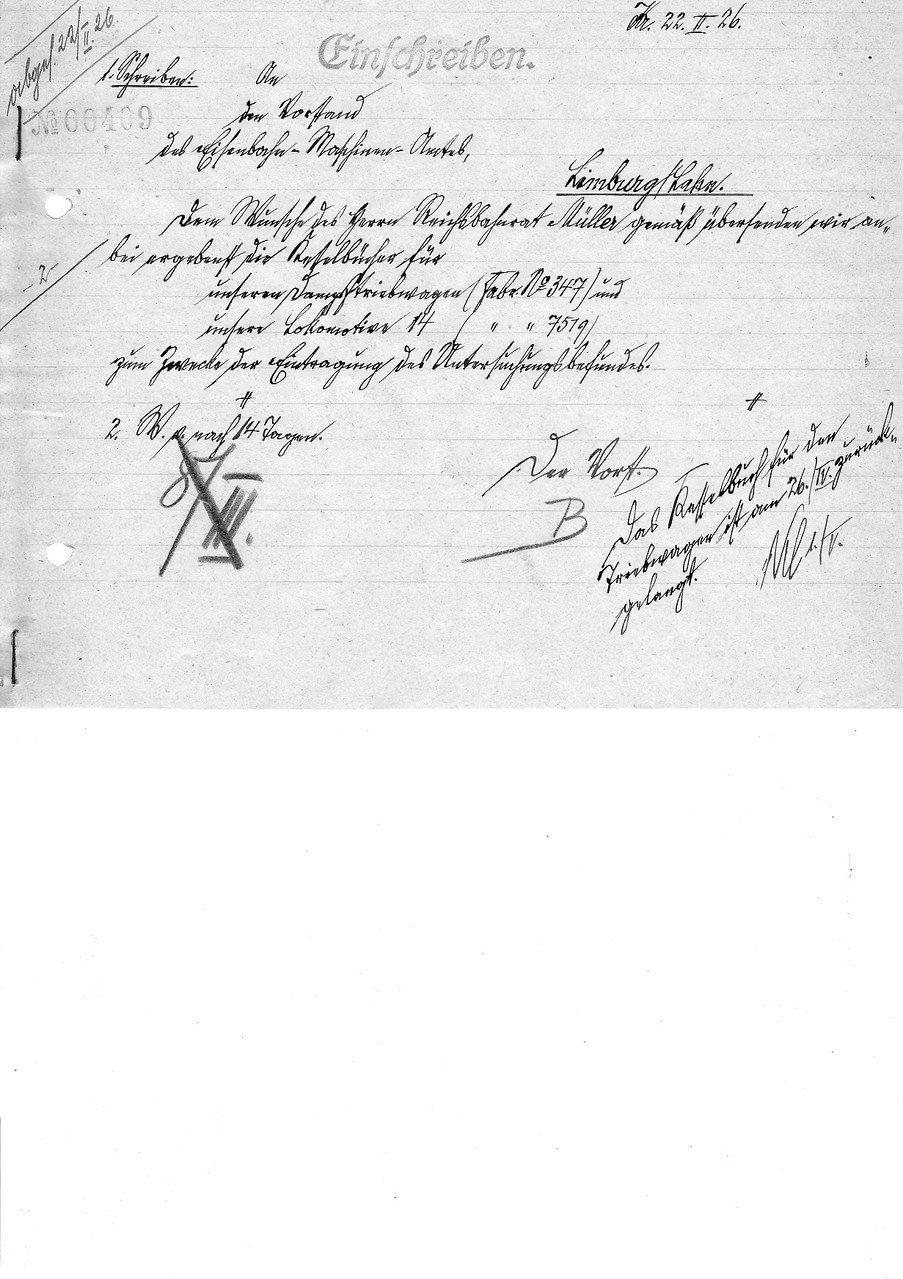 abges. 22/II.26.
Kr. 22.II.26.
Einschreiben.
1. Schreiben: An
den Vorstand
No 00409
des Eisenbahn-Maschinen-Amtes,
Limburg/Lahn.
Dem Wunsche des Herrn Reichsbahnrat Müller gemäß übersenden wir an-
bei ergebenst die Kesselbücher für
-2-
unseren Dampftriebwagen (Fabr. No 347) und
unsere Lokomotive 14 ( " " 7519)
zum Zwecke der Eintragung des Untersuchungsbefundes.
2. W. v. nach 14 Tagen.
8/III.
Der Vorst.
B
Das Kesselbuch für den
Triebwagen ist am 26./IV. zurück-
gelangt.
1./V.